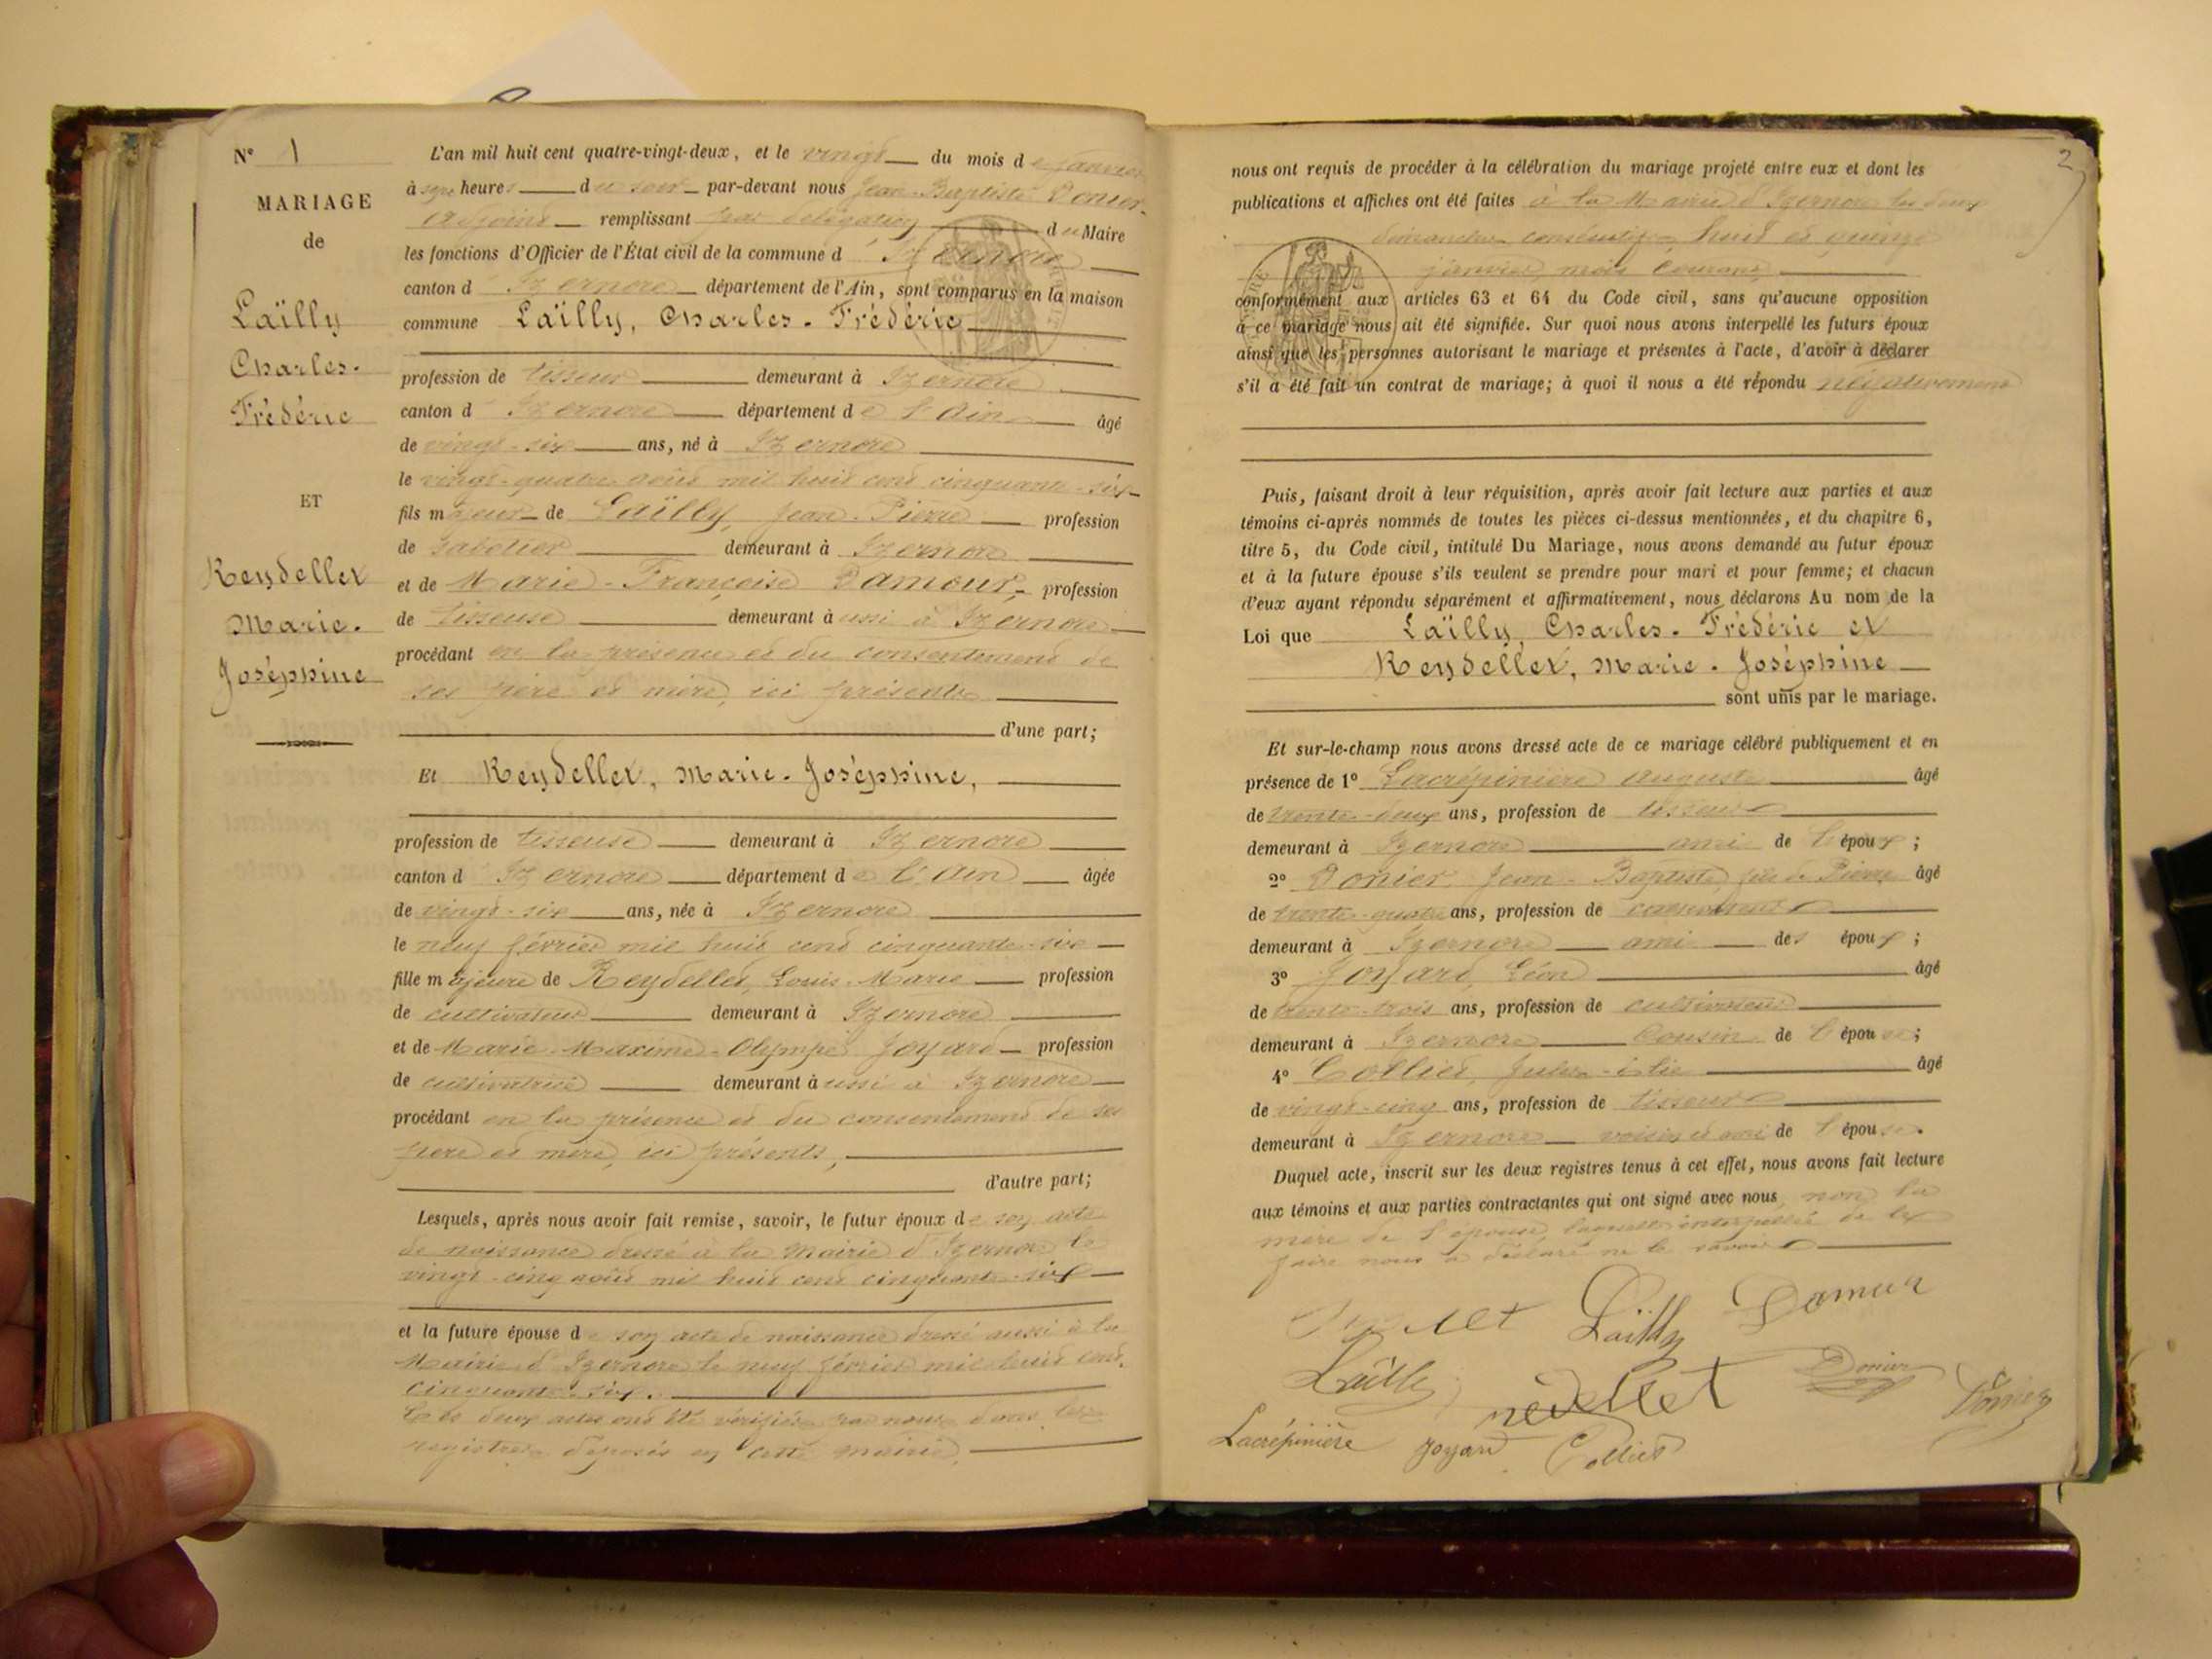 N° 1
MARIAGE
de
Laïlly
Charles-
Frédéric
ET
Reydellet
Marie-
Joséphine
L'an mil huit cent quatre-vingt-deux, et le vingt du mois de janvier
à sept heures du soir par-devant nous Jean-Baptiste Donier
Adjoint remplissant par délégation du Maire
les fonctions d'Officier de l'État civil de la commune d'Izernore
canton d'Izernore département de l'Ain, sont comparus en la maison
commune Laïlly, Charles-Frédéric
profession de tisseur demeurant à Izernore
canton d'Izernore département de l'Ain âgé
de vingt-six ans, né à Izernore
le vingt-quatre août mil huit cent cinquante-six
fils majeur de Laïlly, Jean-Pierre profession
de sabotier demeurant à Izernore
et de Marie-Françoise Damour, profession
de tisseuse demeurant aussi à Izernore
procédant en la présence et du consentement de
ses père et mère, ici présents
d'une part;
Et Reydellet, Marie-Joséphine,
profession de tisseuse demeurant à Izernore
canton d'Izernore département de l'Ain âgée
de vingt-six ans, née à Izernore
le neuf février mil huit cent cinquante-six
fille majeure de Reydellet, Louis-Marie profession
de cultivateur demeurant à Izernore
et de Marie-Maxime-Olympe Joyard profession
de cultivatrice demeurant aussi à Izernore
procédant en la présence et du consentement de ses
père et mère, ici présents,
d'autre part;
Lesquels, après nous avoir fait remise, savoir, le futur époux de son acte
de naissance dressé à la Mairie d'Izernore le
vingt-cinq août mil huit cent cinquante-six
et la future épouse de son acte de naissance dressé aussi à la
Mairie d'Izernore le neuf février mil huit cent
cinquante-six.
Ces deux actes ont été vérifiés par nous dans les
registres déposés en cette mairie.
2
nous ont requis de procéder à la célébration du mariage projeté entre eux et dont les
publications et affiches ont été faites à la Mairie d'Izernore les deux
dimanches consécutifs huit et quinze
janvier, mois courant,
conformément aux articles 63 et 64 du Code civil, sans qu'aucune opposition
à ce mariage nous ait été signifiée. Sur quoi nous avons interpellé les futurs époux
ainsi que les personnes autorisant le mariage et présentes à l'acte, d'avoir à déclarer
s'il a été fait un contrat de mariage; à quoi il nous a été répondu négativement
Puis, faisant droit à leur réquisition, après avoir fait lecture aux parties et aux
témoins ci-après nommés de toutes les pièces ci-dessus mentionnées, et du chapitre 6,
titre 5, du Code civil, intitulé Du Mariage, nous avons demandé au futur époux
et à la future épouse s'ils veulent se prendre pour mari et pour femme; et chacun
d'eux ayant répondu séparément et affirmativement, nous déclarons Au nom de la
Loi que Laïlly, Charles-Frédéric et
Reydellet, Marie-Joséphine
sont unis par le mariage.
Et sur-le-champ nous avons dressé acte de ce mariage célébré publiquement et en
présence de 1° Lacrépinière Auguste âgé
de trente-deux ans, profession de tisseur
demeurant à Izernore ami de l'époux;
2° Donier Jean-Baptiste, fils de Pierre âgé
de trente-quatre ans, profession de
demeurant à Izernore ami des époux;
3° Joyard, Léon âgé
de trente-trois ans, profession de cultivateur
demeurant à Izernore cousin de l'épouse;
4° Collier, Jules-Elie âgé
de vingt-cinq ans, profession de tisseur
demeurant à Izernore voisin et ami de l'épouse.
Duquel acte, inscrit sur les deux registres tenus à cet effet, nous avons fait lecture
aux témoins et aux parties contractantes qui ont signé avec nous, non la
mère de l'épouse laquelle interpellée de le
faire nous a déclaré ne le savoir
Laïlly Damur
Laïlly Donier Donier
Lacrépinière Joyard Collier